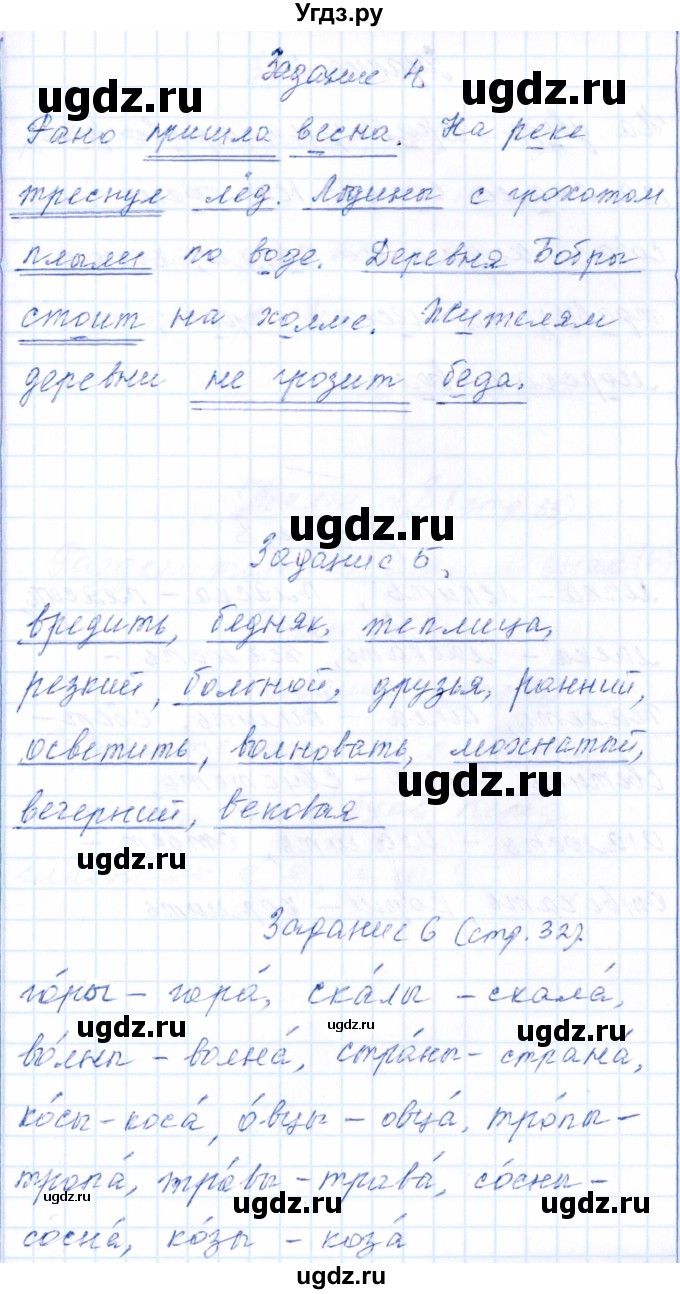 Угдз.ру
Задание 4.
ugdz.ru ugdz.ru
Рано пришла весна. На реке
треснул лёд. Льдины с грохотом
плыли по воде. Деревня Бобры
стоит на холме. Жителям
деревни не грозит беда.
ugdz.ru
Задание 5.
вредить, бедняк, теплица,
резкий, больной, друзья, ранний,
осветить, волновать, мохнатый,
ugdz.ru
вечерний, вековая
ugdz.ru
Задание 6 (стр. 32).
го́ры – гора́, ска́лы – скала́,
ugdz.ru ugdz.ru ugdz.ru
во́лны – волна́, стра́ны – страна́,
ко́сы – коса́, о́вцы – овца́, тро́пы –
тропа́, тра́вы – трава́, со́сны –
ugdz.ru ugdz.ru ugdz.ru
сосна́, ко́зы – коза́
ugdz.ru